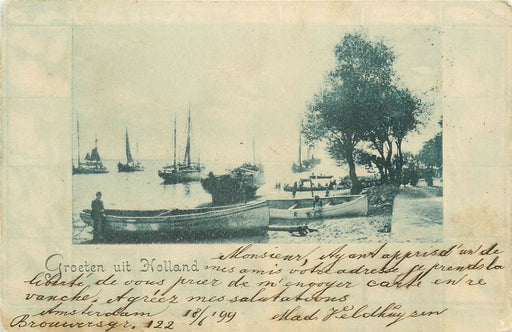 Groeten uit Holland
Monsieur, Ayant appris d'un de
mes amis votre adresse je prends la
liberté de vous prier de m'envoyer carte en re
vanche. Agréez mes salutations
Amsterdam 18/6 99 Mad. Veldhuyzen
Brouwersgr. 122